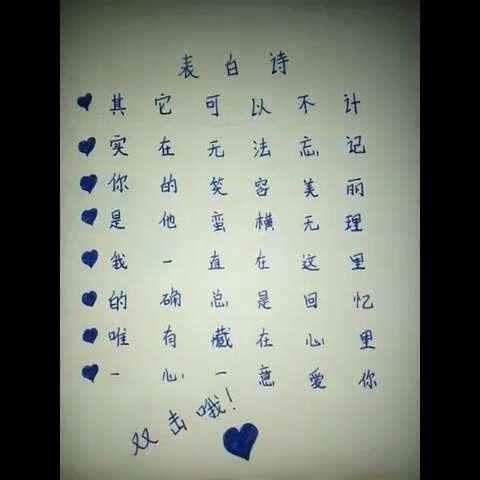 表白诗
其它可以不计
实在无法忘记
你的笑容美丽
是他蛮横无理
我一直在这里
的确总是回忆
唯有藏在心里
一心一意爱你
双击哦!